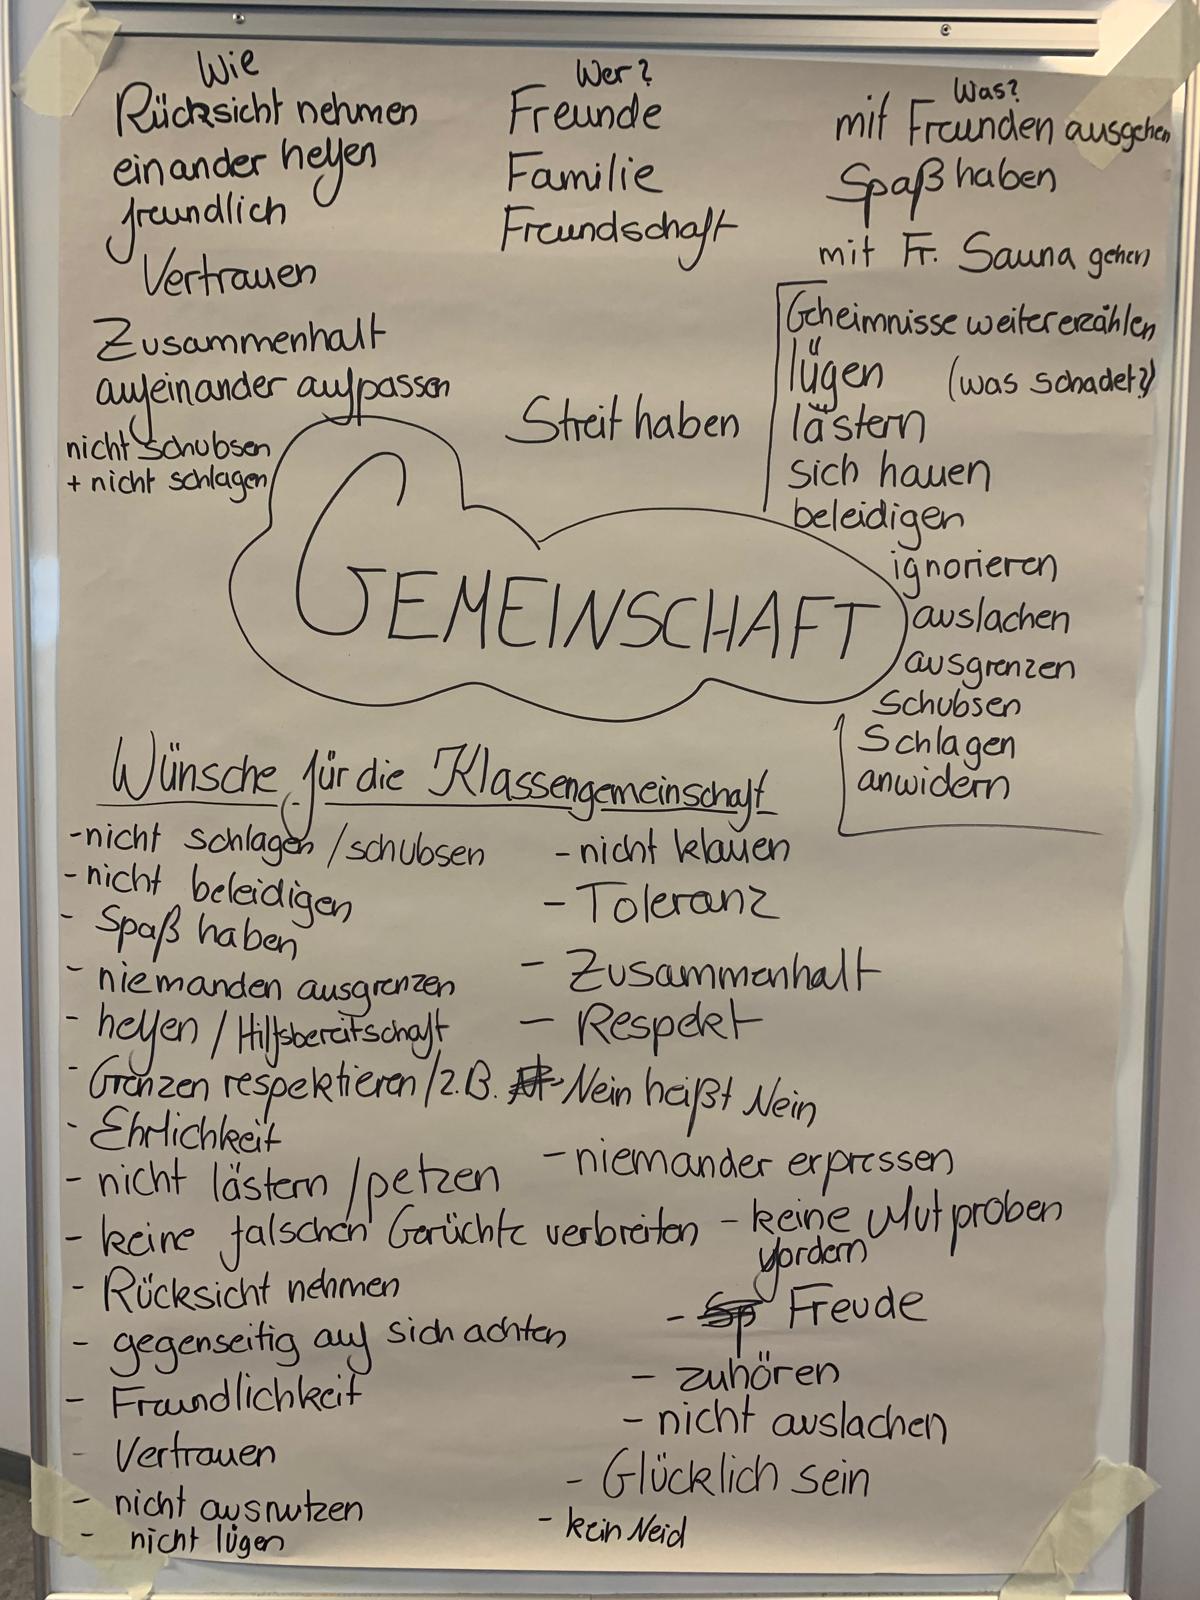 Wie
Rücksicht nehmen
einander helfen
freundlich
Vertrauen
Zusammenhalt
aufeinander aufpassen
nicht schubsen
+ nicht schlagen
Wer?
Freunde
Familie
Freundschaft
Streit haben
Was?
mit Freunden ausgehen
Spaß haben
mit Fr. Sauna gehen
Geheimnisse weitererzählen
lügen (was schadet?)
lästern
sich hauen
beleidigen
ignorieren
auslachen
ausgrenzen
Schubsen
Schlagen
anwidern
GEMEINSCHAFT
Wünsche für die Klassengemeinschaft
- nicht schlagen / schubsen
- nicht beleidigen
- Spaß haben
- niemanden ausgrenzen
- helfen / Hilfsbereitschaft
- Grenzen respektieren / z.B. Nein heißt Nein
- Ehrlichkeit
- nicht lästern / petzen
- keine falschen Gerüchte verbreiten
- Rücksicht nehmen
- gegenseitig auf sich achten
- Freundlichkeit
- Vertrauen
- nicht ausnutzen
- nicht lügen
- nicht klauen
- Toleranz
- Zusammenhalt
- Respekt
- niemanden erpressen
- keine Mutproben
fordern
- Freude
- zuhören
- nicht auslachen
- Glücklich sein
- kein Neid